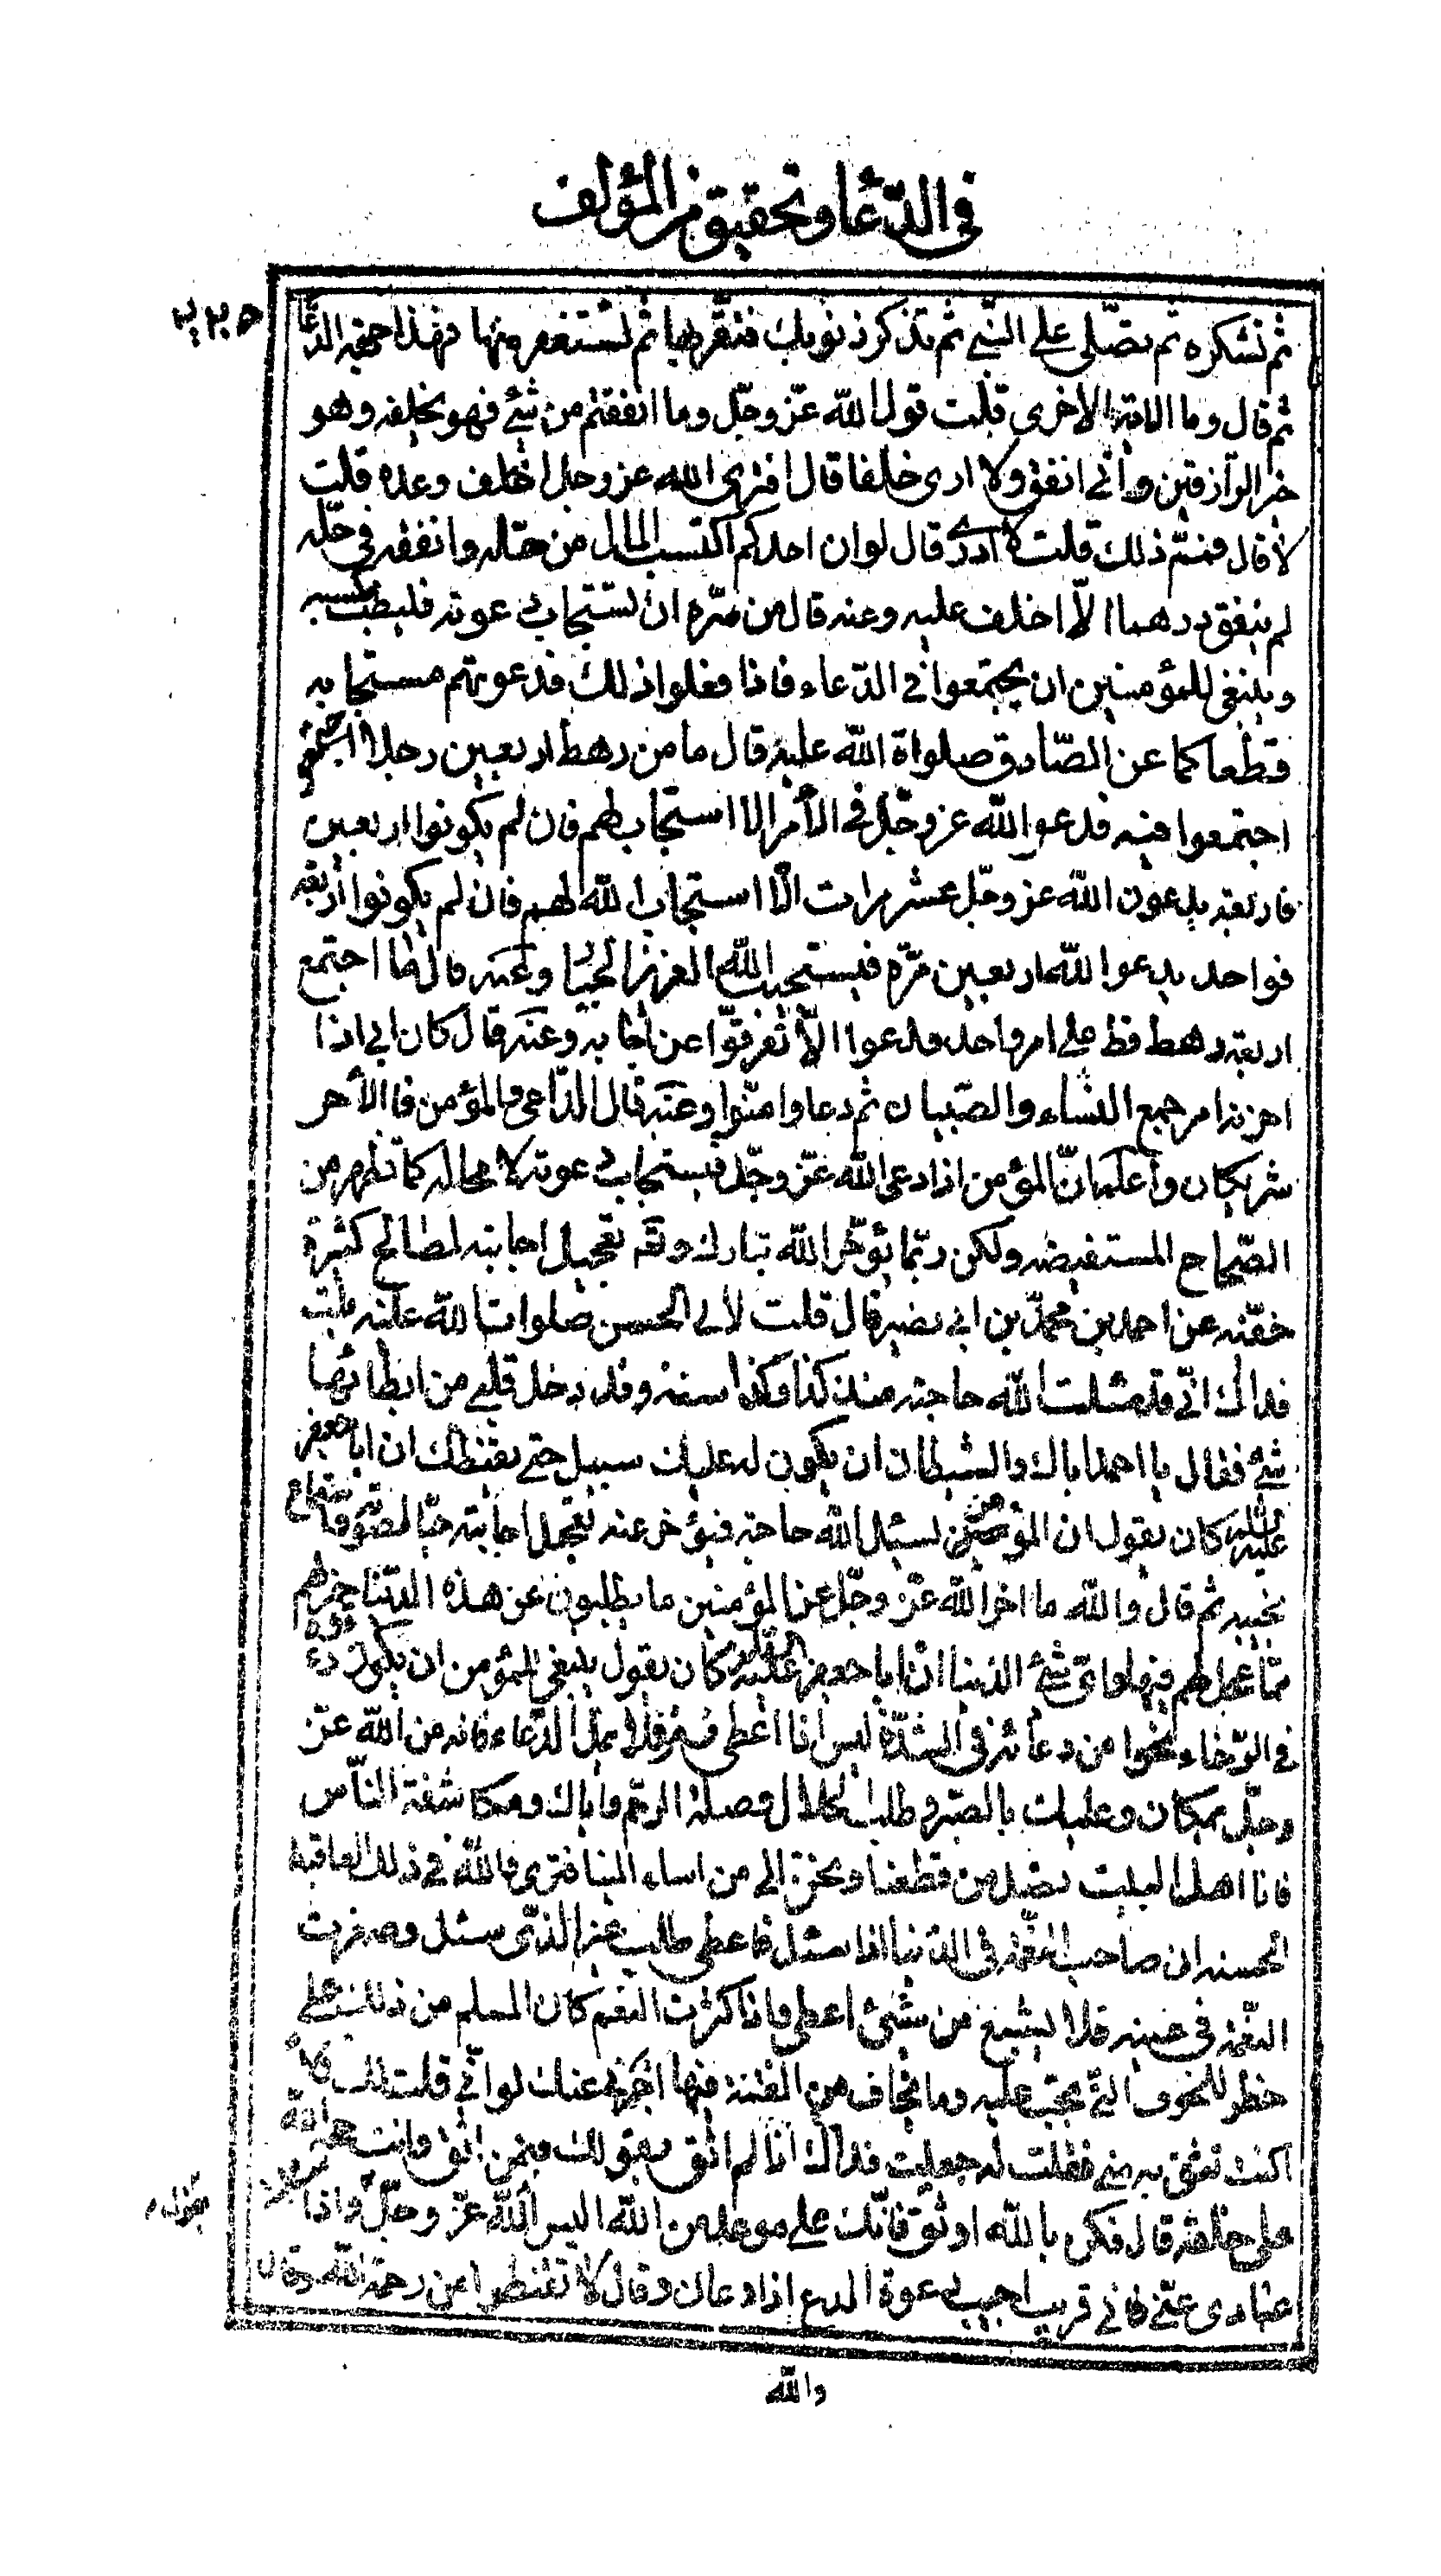 في الدّعا وتحقيق من المؤلف
ثم تشكره ثم تصّلى على النبّي ثم تذكر ذنوبك فتقّر بها ثم تستغفر منها فهذا جهة الدّعا
ثم قال وما الاية الاخرى قلت قول الله عزّ وجلّ وما انفقتم من شئ فهو يخلفه وهو
خير الرّازقين وانّي انفق ولا ارى خلفا قال افترى الله عز وجل اخلف وعده قلت
لا قال فممّ ذلك قلت لا ادرى قال لو ان احدكم اكتسب المال من حلّه وانفقه في حلّه
لم ينفق درهما الّا اخلف عليه وعنه قال من سرّه ان تستجاب دعوته فليطب مكسبه
وينبغي للمؤمنين ان يجتمعوا في الدّعاء فاذا فعلوا ذلك فدعوتهم مستجابه
قطعا كما عن الصّادق صلواة الله عليه قال ما من رهط اربعين رجلا اجتمعوا
اجتمعوا فيه فدعوا الله عز وجلّ في الأمر الا استجاب لهم فان لم يكونوا اربعين
فاربعة يدعون الله عز وجلّ عشر مرات الّا استجاب الله لهم فان لم يكونوا اربعة
فواحد يدعوا الله اربعين مرّه فيستجيب الله العزيز الجبّار له وعنه قال ما اجتمع
اربعة رهط قط على امر واحد فدعوا الّا تفرقوا عن اجابه وعنه قال كان ابي اذا
احزنه امر جمع النساء والصّبيان ثم دعا وامنّوا وعنه قال الدّاعى والمؤمن فى الأجر
شريكان واعلم انّ المؤمن اذا دعى الله عزّ وجلّ فيستجاب دعوته لا محاله كما تظهر من
الصّحاح المستفيضه ولكن ربّما يؤخّر الله تبارك وتعہ تعجيل اجابته لمصالح كثيرة
فعنه عن احمد بن محمّد بن ابي نصير قال قلت لأبي الحسن صلوات الله عليه جعلت
فداك انّي قد سئلت الله حاجته منذ كذا وكذا سنه وقد دخل قلبي من ابطائها
شئ فقال يا احمد اياك والشيطان ان يكون له عليك سبيل حتى يقنطك ان ابا جعفر
عليه السلام كان يقول ان المؤمن يسئل الله حاجة فيؤخر عنه تعجيل اجابته حبّا لصوته واستماع
نحيبه ثم قال والله ما اخر الله عزّ وجلّ عن المؤمنين ما يطلبون عن هذه الدّنيا خير لهم
ممّا عجل لهم فيها واىّ شئ الدّنيا انّ ابا جعفر عليه السلام كان يقول ينبغي للمؤمن ان يكون دعاؤه
في الرّخاء نحوا من دعائه في الشدّة ليس اذا اعطى فتر فلا تمل الدّعاء فانه من الله عزّ
وجلّ بمكان وعليك بالصّبر وطلب الحلال وصلة الرحم واياك ومكاشفة النّاس
فانا اهل البيت نصل من قطعنا ونحسن الى من اساء الينا فنرى والله في ذلك العاقبة
الحسنه ان صاحب النّعمة في الدّنيا اذا سئل فاعطى طلب غير الذّى سئل وصغرت
النّعمة في عينه فلا يشبع من شئ اعطى واذا كثرت النعم كان المسلم من ذلك على
خطر للحقوق التّي تجب عليه وما يخاف من الفتنة فيها اخبرنى عنك لو انّي قلت لك قولا
اكنت تثق به منى فقلت له جعلت فداك اذا لم اثق بقولك فبمن اثق وانت حجة الله
على خلقه قال فكن بالله اوثق فانّك على موعد من الله اليس الله عزّ وجلّ واذا سئلك
يقول
عبادى عنّي فاني قريب اجيب دعوة الداع اذا دعان وقال لا تقنطوا من رحمة الله وقال
والله